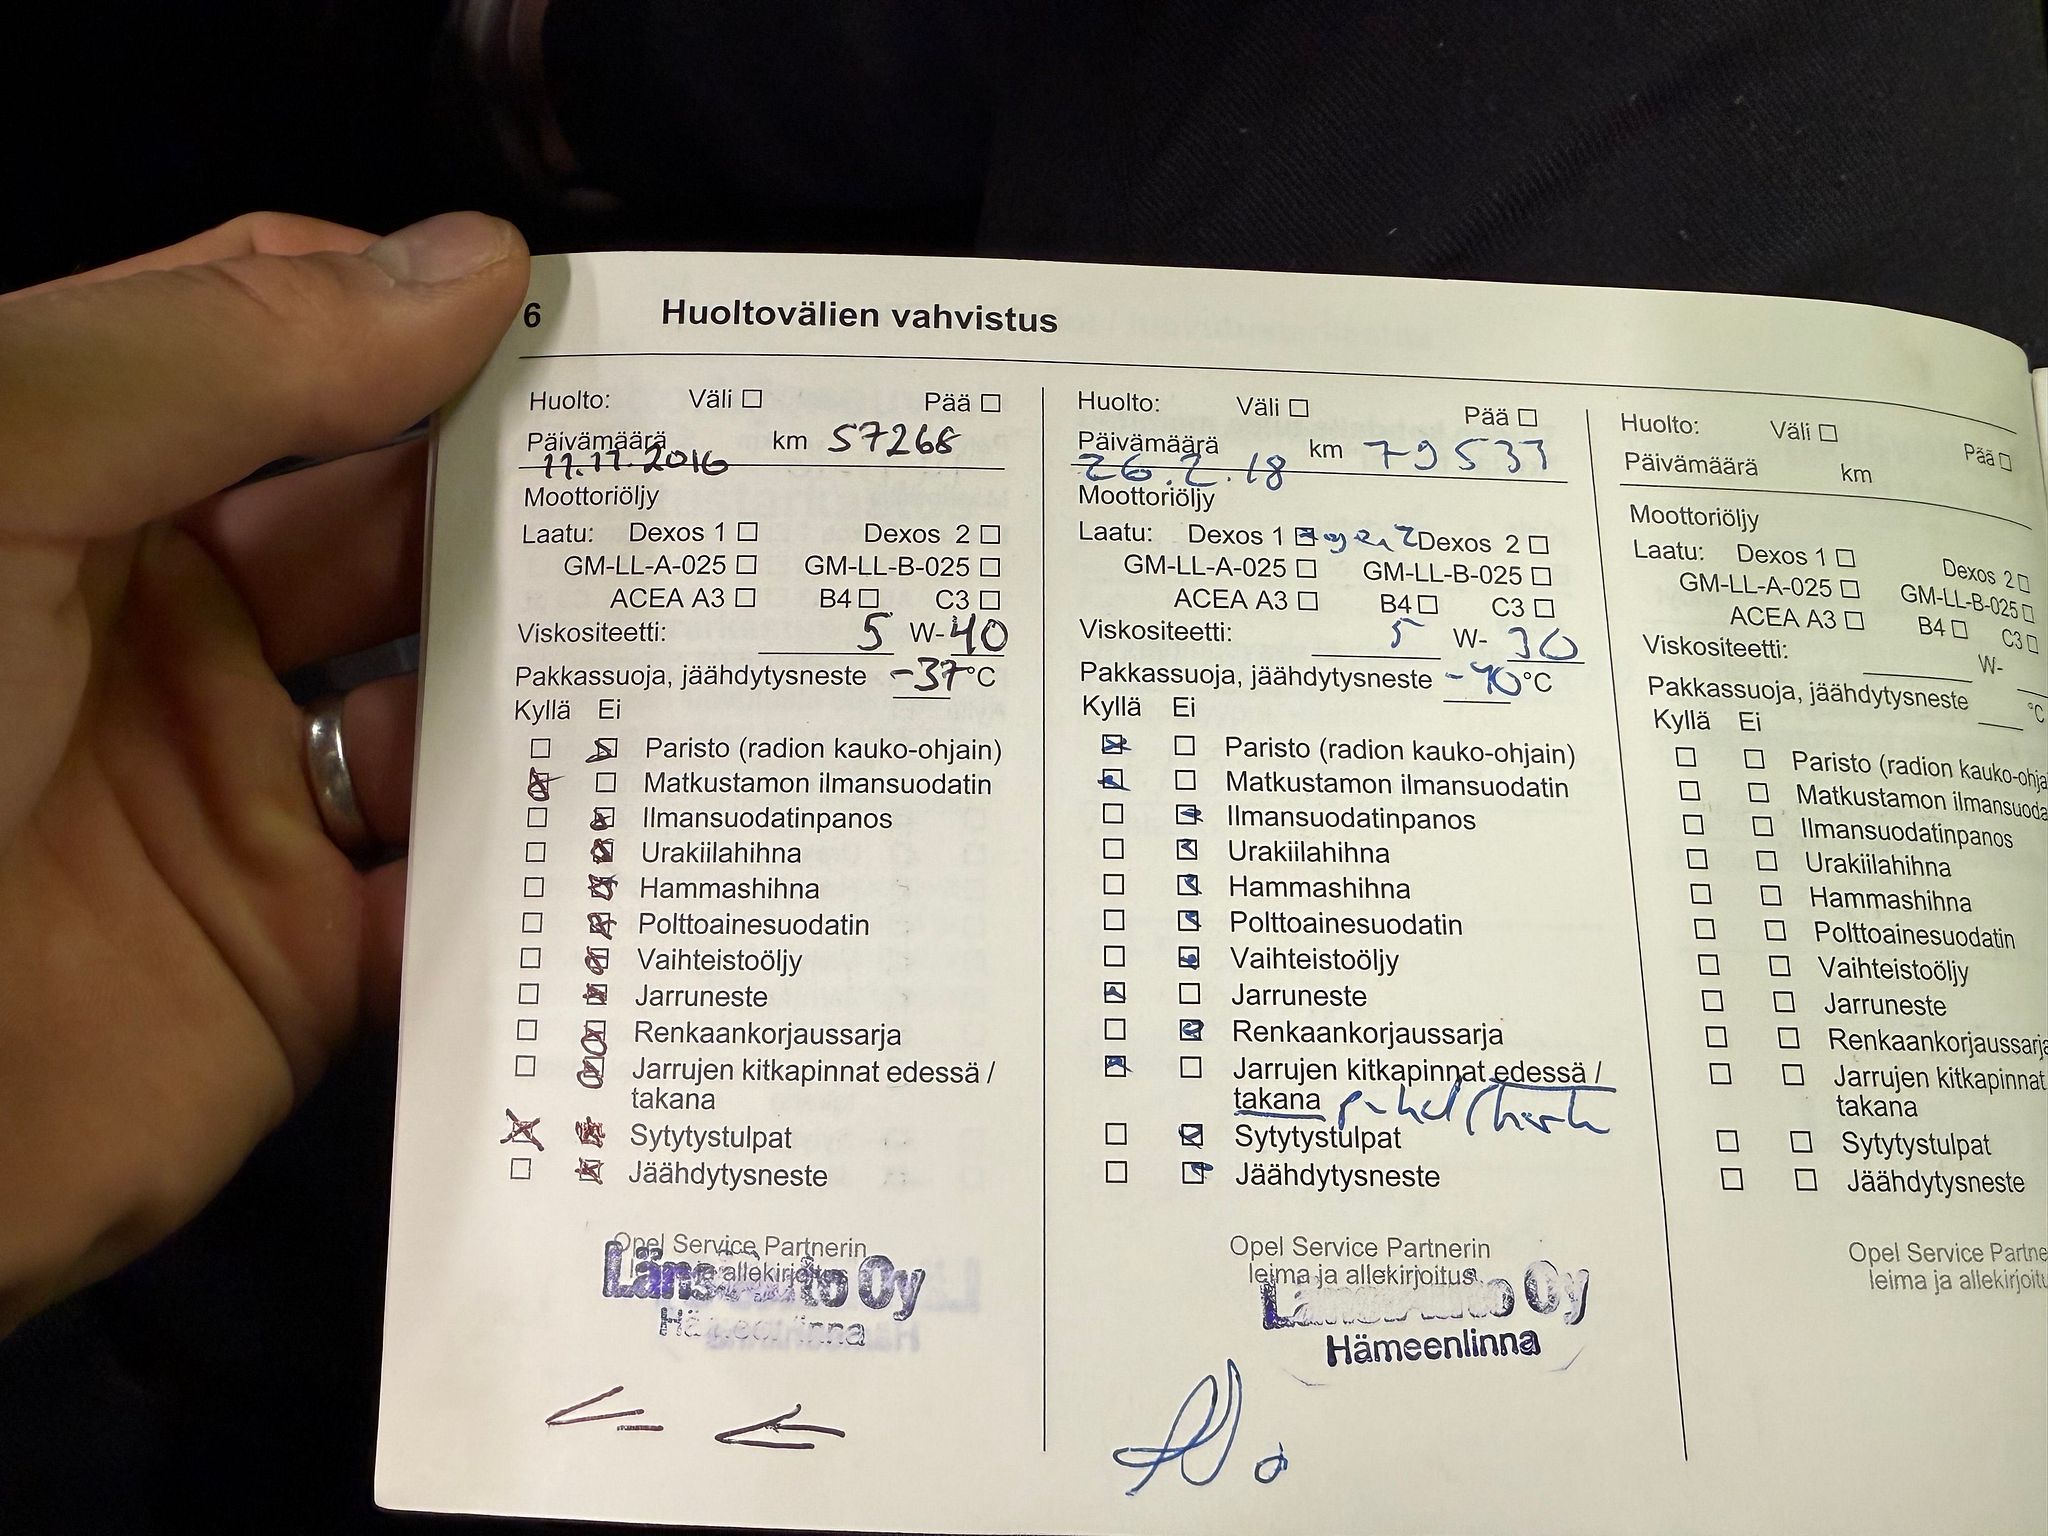 6 Huoltovälien vahvistus
Huolto: Väli Pää
Päivämäärä km 57268
11.11.2016
Moottoriöljy
Laatu: Dexos 1 Dexos 2
GM-LL-A-025 GM-LL-B-025
ACEA A3 B4 C3
Viskositeetti: 5 W-40
Pakkassuoja, jäähdytysneste -37°C
Kyllä Ei
Paristo (radion kauko-ohjain)
Matkustamon ilmansuodatin
Ilmansuodatinpanos
Urakiilahihna
Hammashihna
Polttoainesuodatin
Vaihteistoöljy
Jarruneste
Renkaankorjaussarja
Jarrujen kitkapinnat edessä /
takana
Sytytystulpat
Jäähdytysneste
Opel Service Partnerin
leima ja allekirjoitus
Länsi-Auto Oy
Hämeenlinna
Huolto: Väli Pää
Päivämäärä km 79533
26.2.18
Moottoriöljy
Laatu: Dexos 1 Dexos 2
GM-LL-A-025 GM-LL-B-025
ACEA A3 B4 C3
Viskositeetti: 5 W- 30
Pakkassuoja, jäähdytysneste -40°C
Kyllä Ei
Paristo (radion kauko-ohjain)
Matkustamon ilmansuodatin
Ilmansuodatinpanos
Urakiilahihna
Hammashihna
Polttoainesuodatin
Vaihteistoöljy
Jarruneste
Renkaankorjaussarja
Jarrujen kitkapinnat edessä /
takana
Sytytystulpat
Jäähdytysneste
Opel Service Partnerin
leima ja allekirjoitus
Länsi-Auto Oy
Hämeenlinna
Huolto: Väli Pää
Päivämäärä km
Moottoriöljy
Laatu: Dexos 1 Dexos 2
GM-LL-A-025 GM-LL-B-025
ACEA A3 B4 C3
Viskositeetti: W-
Pakkassuoja, jäähdytysneste °C
Kyllä Ei
Paristo (radion kauko-ohja
Matkustamon ilmansuoda
Ilmansuodatinpanos
Urakiilahihna
Hammashihna
Polttoainesuodatin
Vaihteistoöljy
Jarruneste
Renkaankorjaussarja
Jarrujen kitkapinnat
takana
Sytytystulpat
Jäähdytysneste
Opel Service Partne
leima ja allekirjoitu